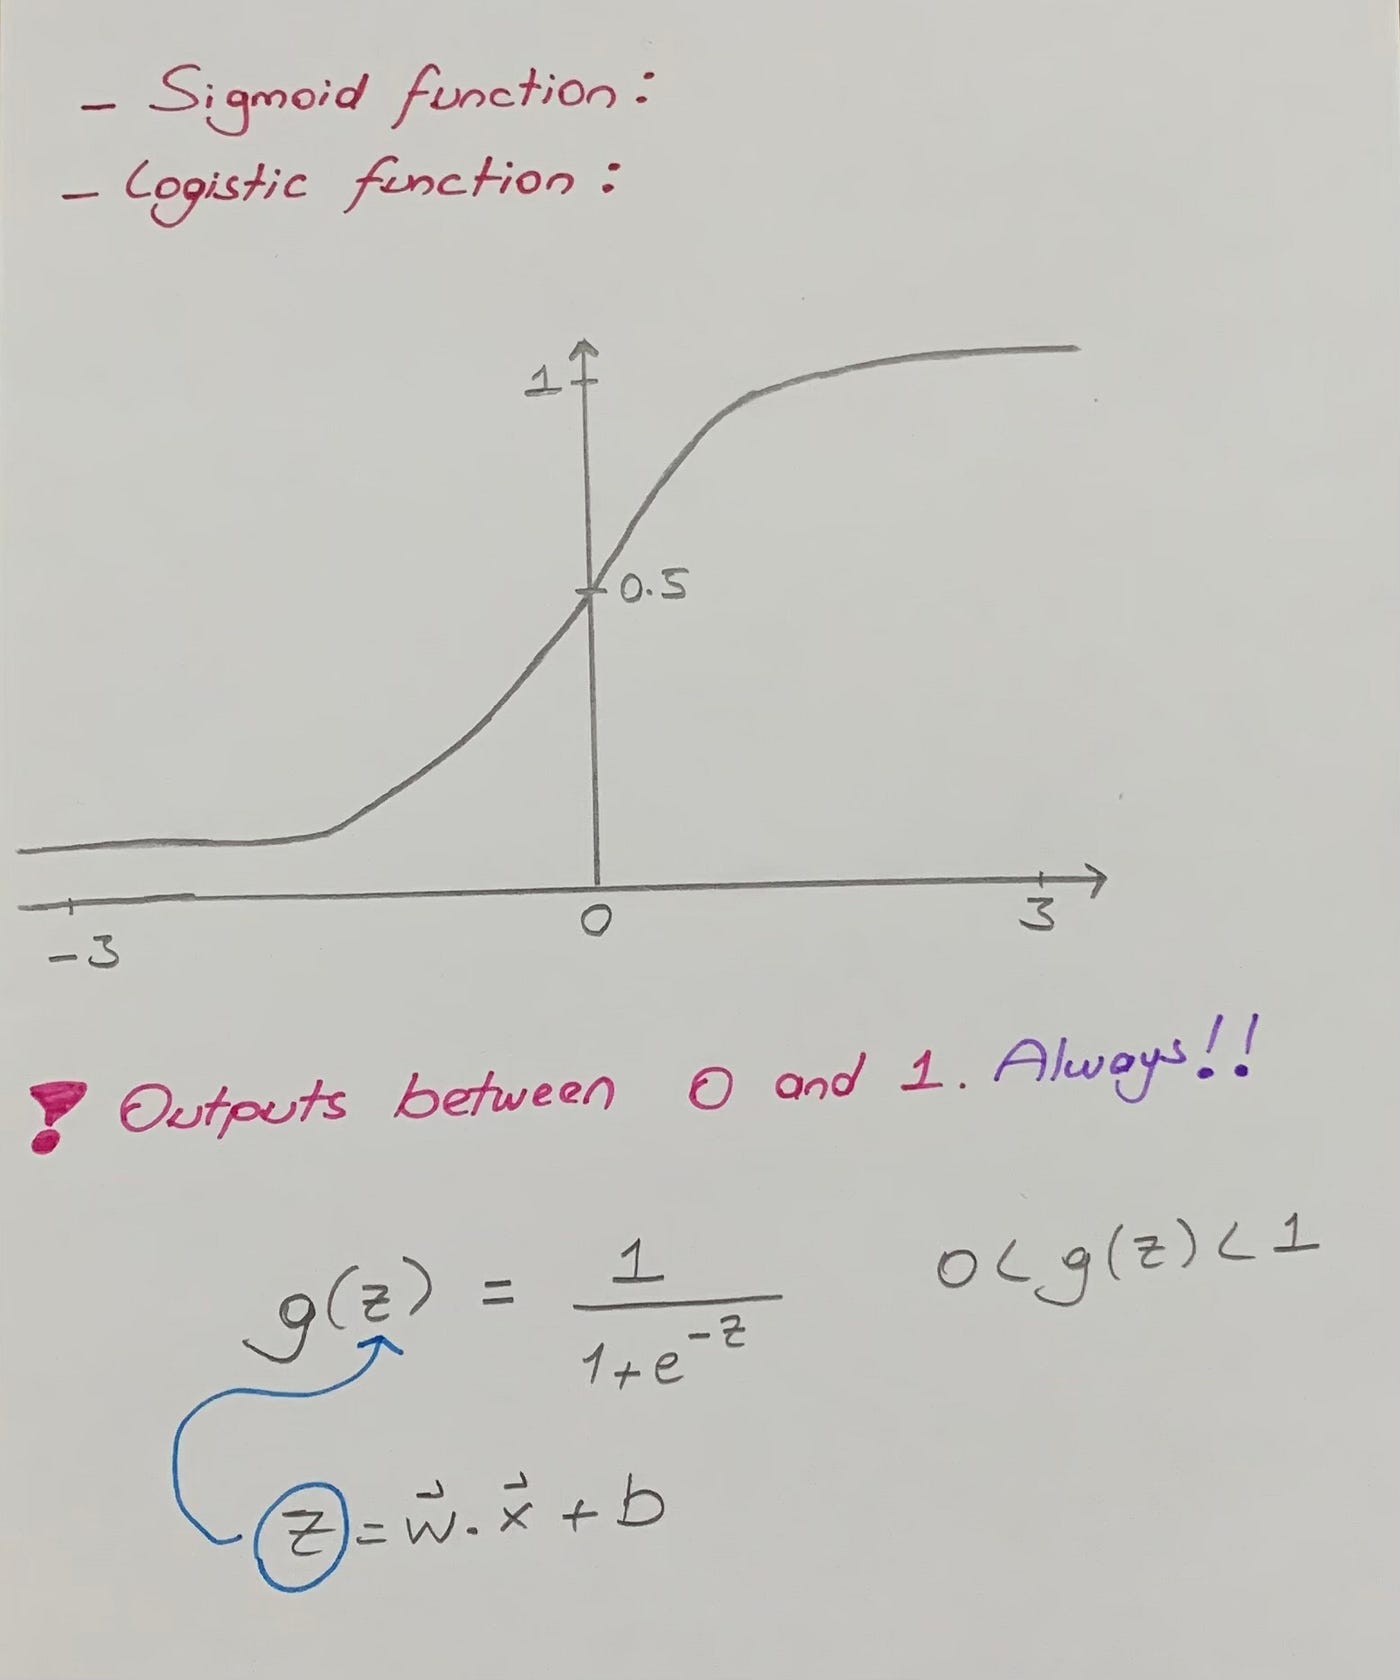 - Sigmoid function:
- Logistic function:
1
0.5
-3 0 3
! Outputs between 0 and 1. Always!!
g(z) = 1 / 1+e^-z 0 < g(z) < 1
z = w⃗ . x⃗ + b